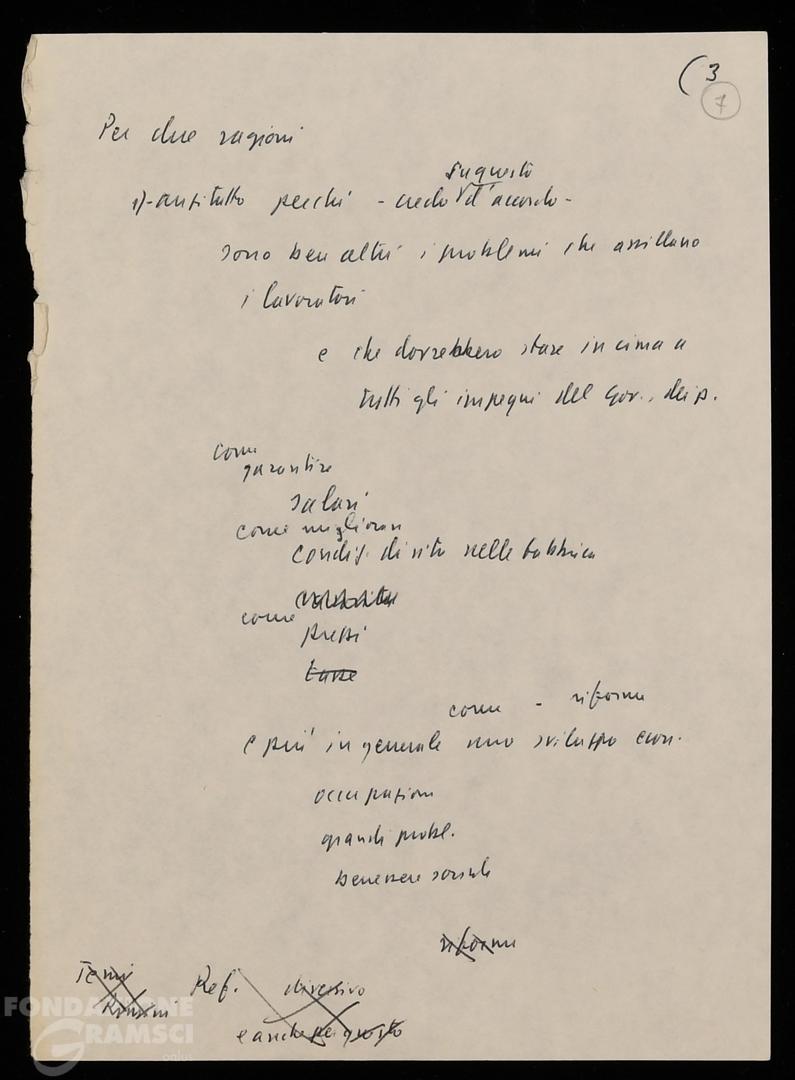 (3
7
Per due ragioni
su questo
1)- anzitutto perché - credo d'accordo -
sono ben altri i problemi che assillano
i lavoratori
e che dovrebbero stare in cima a
tutti gli impegni del Gov., dei p.
come
garantire
salari
come migliorare
condiz. di vita nelle fabbrica
come
prezzi
tasse
come - riforme
e più in generale uno sviluppo econ.
occupazione
grandi probl.
benessere sociale
riforme
Temi
Ref. diversivo
e anche per questo
FONDAZIONE
GRAMSCI
onlus